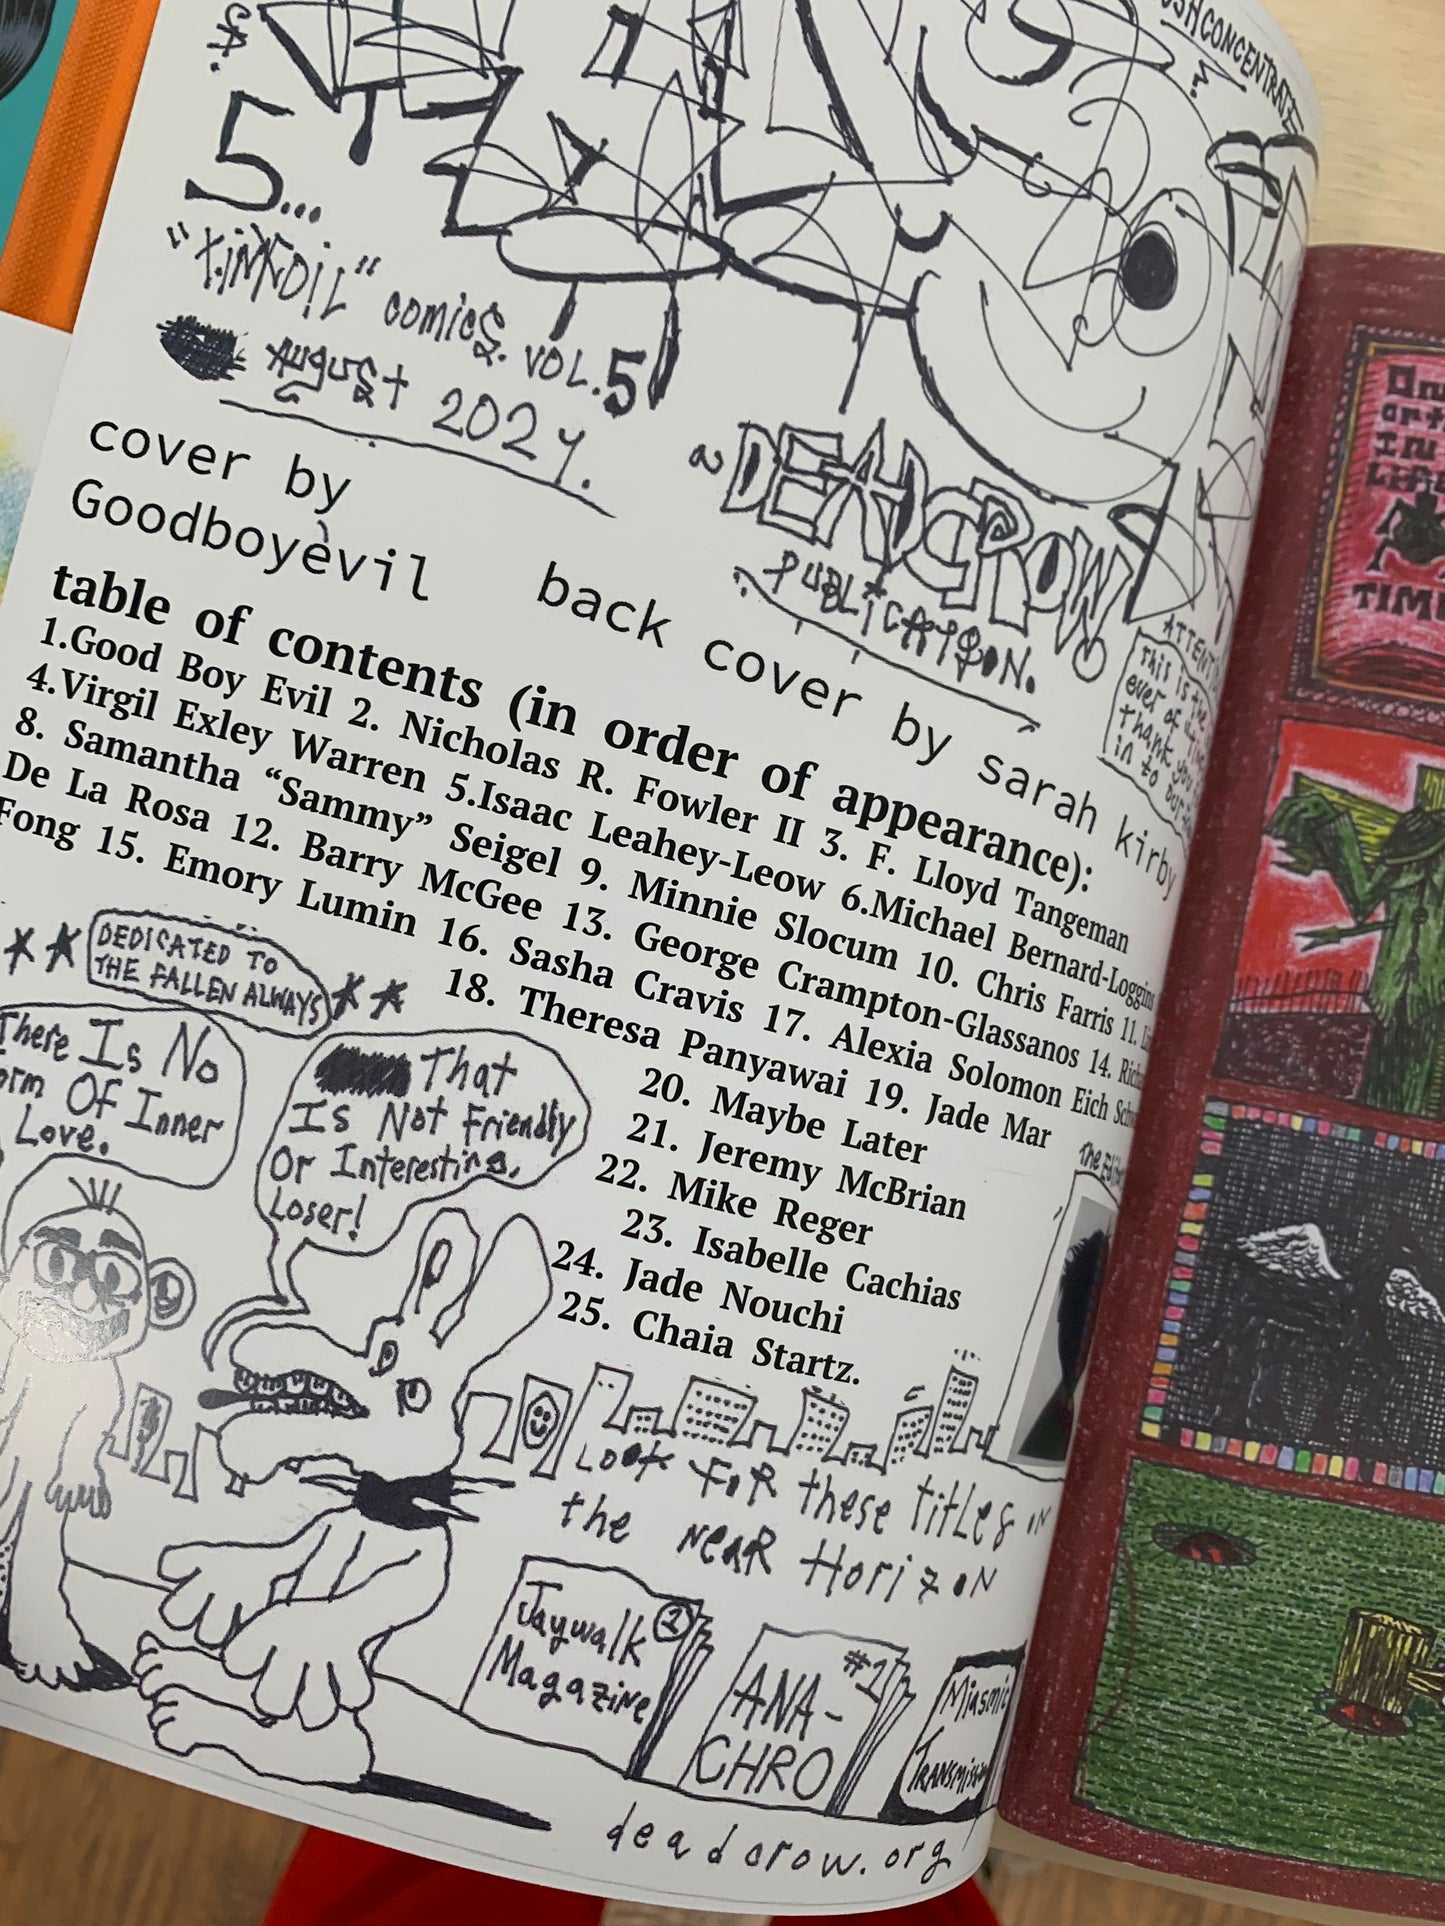 5...
"tiNFOiL" comics. VOL.5
August 2024.
~DEADCROW
PUBLiCATiSON.
cover by
Goodboyèvil
back cover by sarah kirby
ATTENTI
This is the
ever of
thank you
in to our
table of contents (in order of appearance):
1.Good Boy Evil 2. Nicholas R. Fowler II 3. F. Lloyd Tangeman
4.Virgil Exley Warren 5.Isaac Leahey-Leow 6.Michael Bernard-Loggins
8. Samantha “Sammy” Seigel 9. Minnie Slocum 10. Chris Farris 11.
De La Rosa 12. Barry McGee 13. George Crampton-Glassanos 14.
Fong 15. Emory Lumin 16. Sasha Cravis 17. Alexia Solomon Eich
18. Theresa Panyawai 19. Jade Mar
20. Maybe Later
21. Jeremy McBrian
22. Mike Reger
23. Isabelle Cachias
24. Jade Nouchi
25. Chaia Startz.
DEDICATED TO
THE FALLEN ALWAYS
There Is No
Of Inner
Love.
That
Is Not Friendly
Or Interesting,
Loser!
The Edito
Look FoR these titLes oN
the NeaR HorizoN
Jaywalk 2
Magazine
#1
ANA-
CHRO
Miasmic
Transmission
deadcrow.org
In
TIM